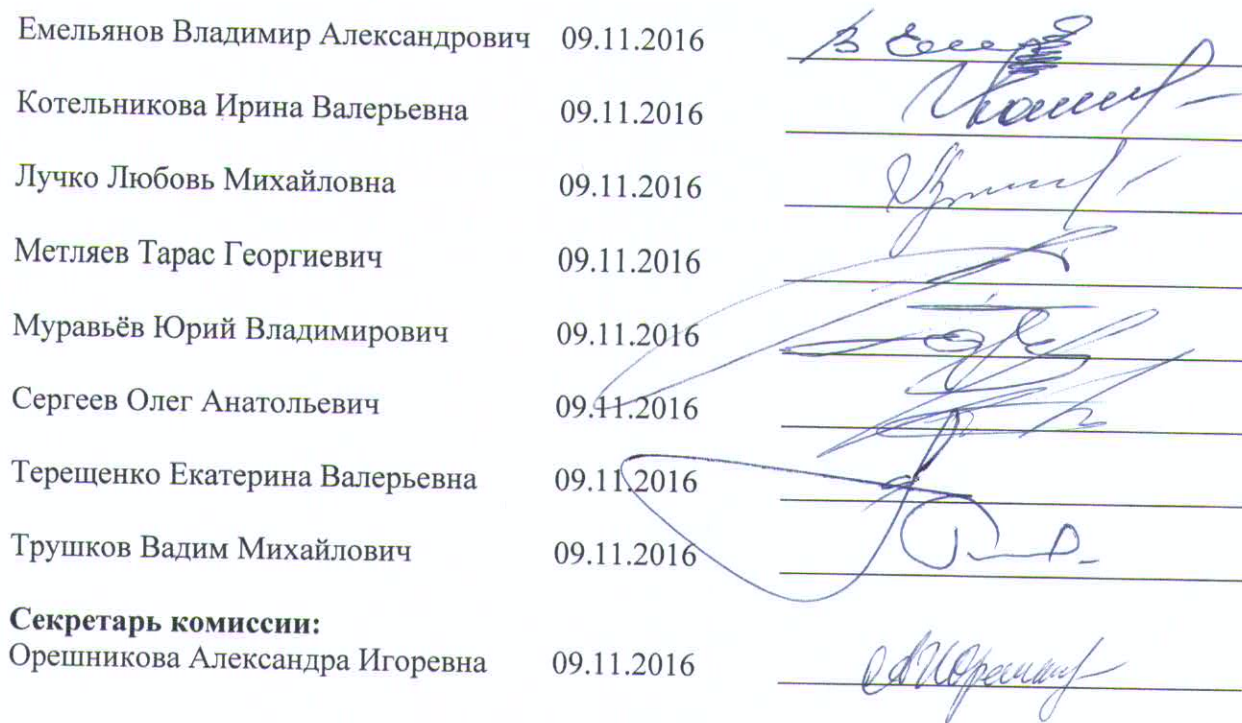 Емельянов Владимир Александрович 09.11.2016
Котельникова Ирина Валерьевна 09.11.2016
Лучко Любовь Михайловна 09.11.2016
Метляев Тарас Георгиевич 09.11.2016
Муравьёв Юрий Владимирович 09.11.2016
Сергеев Олег Анатольевич 09.11.2016
Терещенко Екатерина Валерьевна 09.11.2016
Трушков Вадим Михайлович 09.11.2016
Секретарь комиссии:
Орешникова Александра Игоревна 09.11.2016